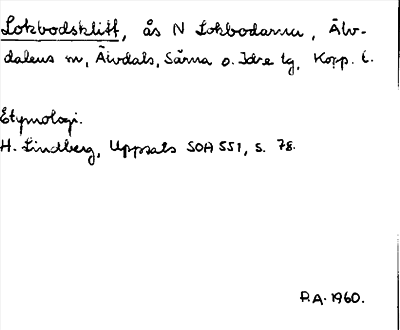 Lokbodsklitt, ås N Lokbodarna, Älv-
dalens m, Älvdals, Särna o. Idre tg, Kopp. l.
Etymologi.
H. Lindberg, Uppsats SOA 551, s. 78.
P.A. 1960.